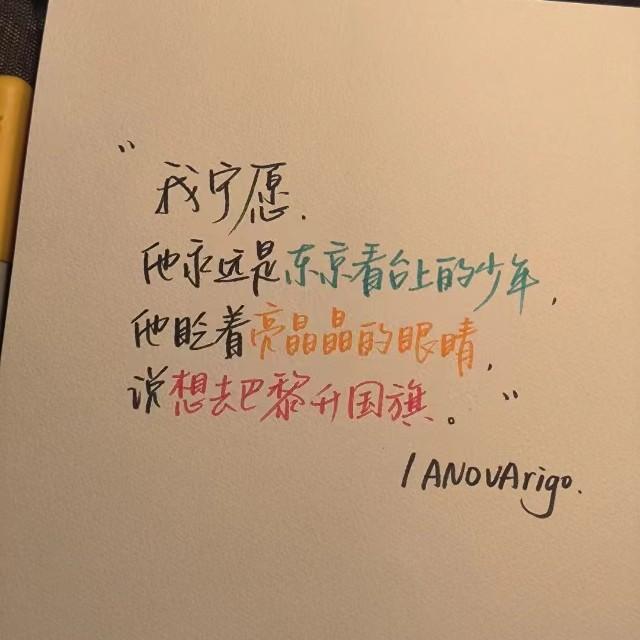 “我宁愿.
他永远是东京看台上的少年,
他眨着亮晶晶的眼睛,
说想去巴黎升国旗。”
/ ANOVArigo.